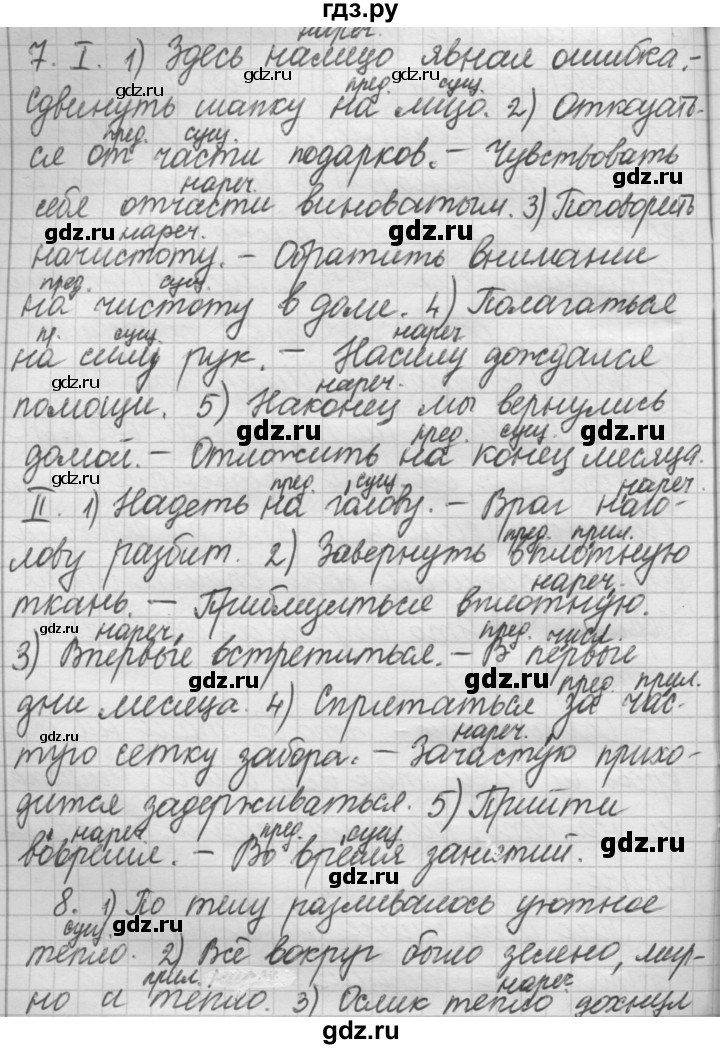 гдз.ру
нареч.
7. I. 1) Здесь налицо явная ошибка. -
gdz.ru gdz.ru пред. сущ.
Сдвинуть шапку на лицо. 2) Отказать-
gdz.ru пред. сущ. gdz.ru
ся от части подарков. - Чувствовать
нареч.
себя отчасти виноватым. 3) Поговорить
gdz.ru нареч. gdz.ru
начистоту. - Обратить внимание
пред. сущ.
на чистоту в доме. 4) Полагаться
пр. сущ. нареч.
на силу рук. - Насилу дождался
gdz.ru нареч. gdz.ru
помощи. 5) Наконец мы вернулись
gdz.ru пред. сущ. gdz.ru
домой. - Отложить на конец месяца.
gdz.ru пред. сущ. нареч.
II. 1) Надеть на голову. - Враг наго-
лову разбит. 2) Завернуть в плотную
gdz.ru пред. прил.
ткань. - Приблизиться вплотную.
нареч.
gdz.ru нареч. пред. числ.
3) Впервые встретиться. - В первые
gdz.ru gdz.ru
дни месяца. 4) Спрятаться за час-
пред. прил.
тую сетку забора. - Зачастую прихо-
gdz.ru нареч. gdz.ru
дится задерживаться. 5) Прийти
нареч. пред. сущ.
вовремя. - Во время занятий.
gdz.ru gdz.ru gdz.ru
8. 1) По телу разливалось уютное
сущ. gdz.ru gdz.ru
тепло. 2) Всё вокруг было зелено, мир-
прил. нареч.
но и тепло. 3) Ослик тепло дохнул
gdz.ru gdz.ru
гдз.ру